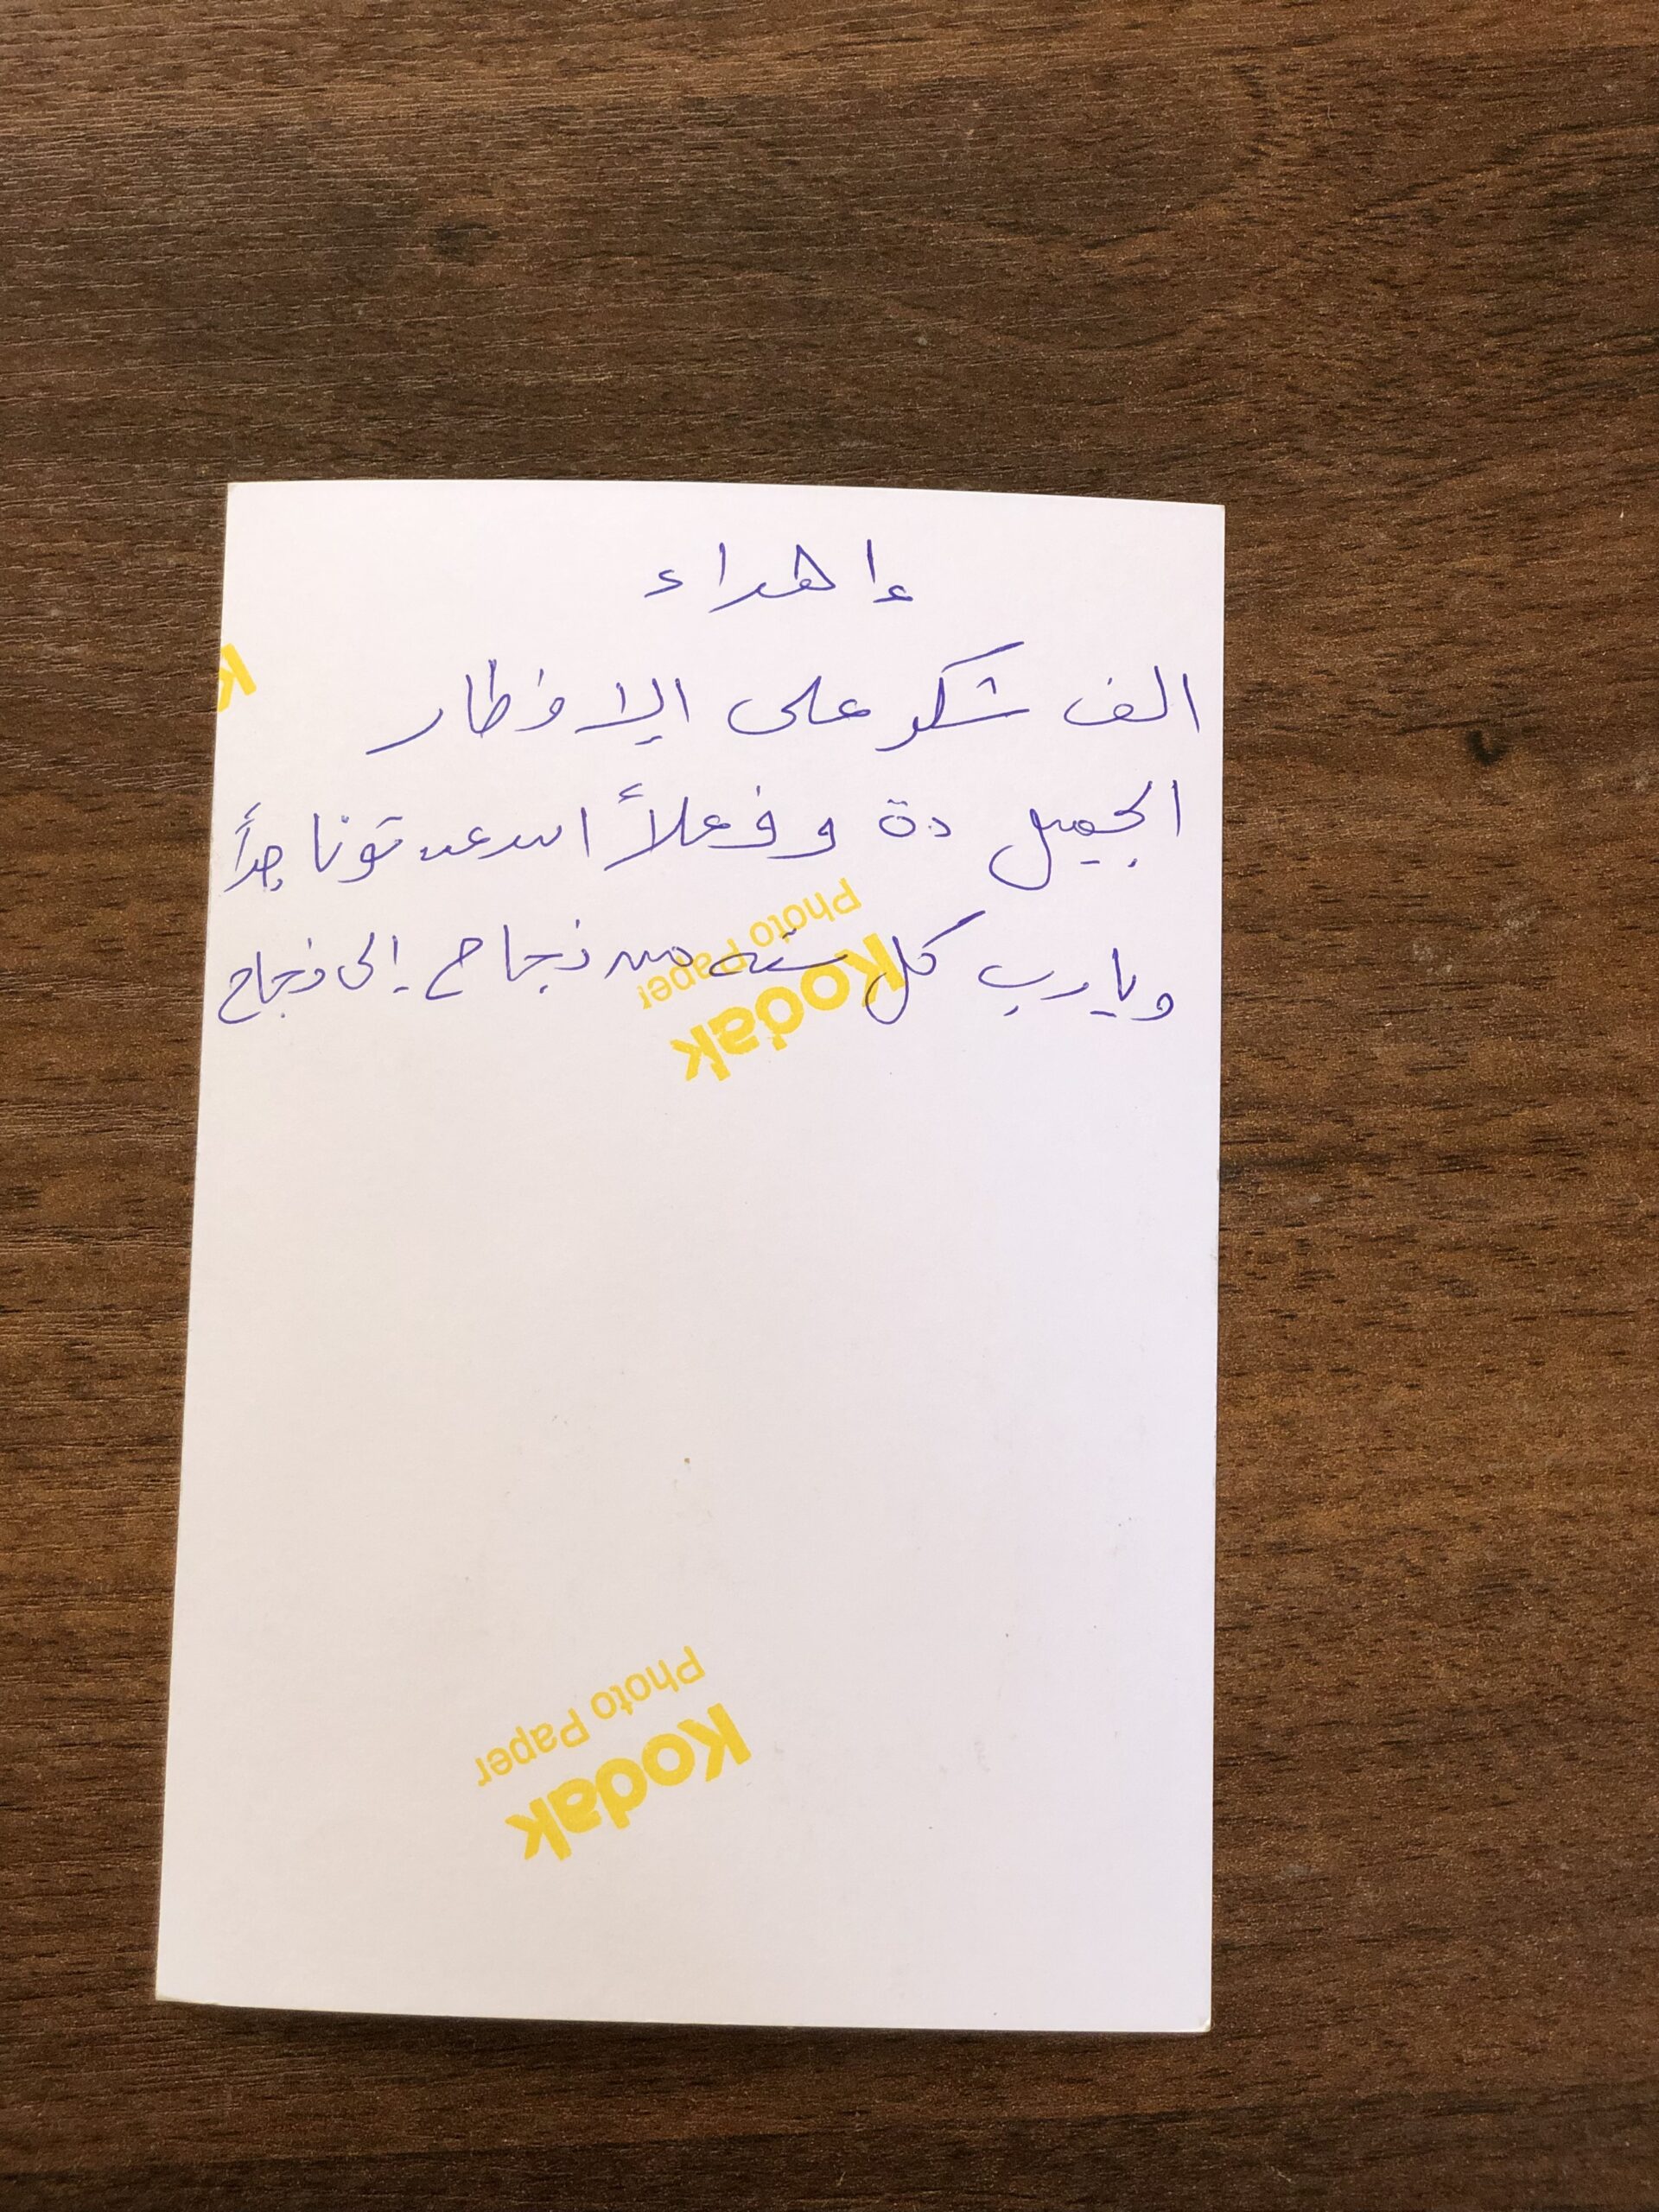 إهداء
الف شكر على الإفطار
الجميل دة وفعلاً اسعدتونا جداً
ويارب كل سنه من نجاح إلى نجاح
K
Kodak
Photo Paper
Kodak
Photo Paper